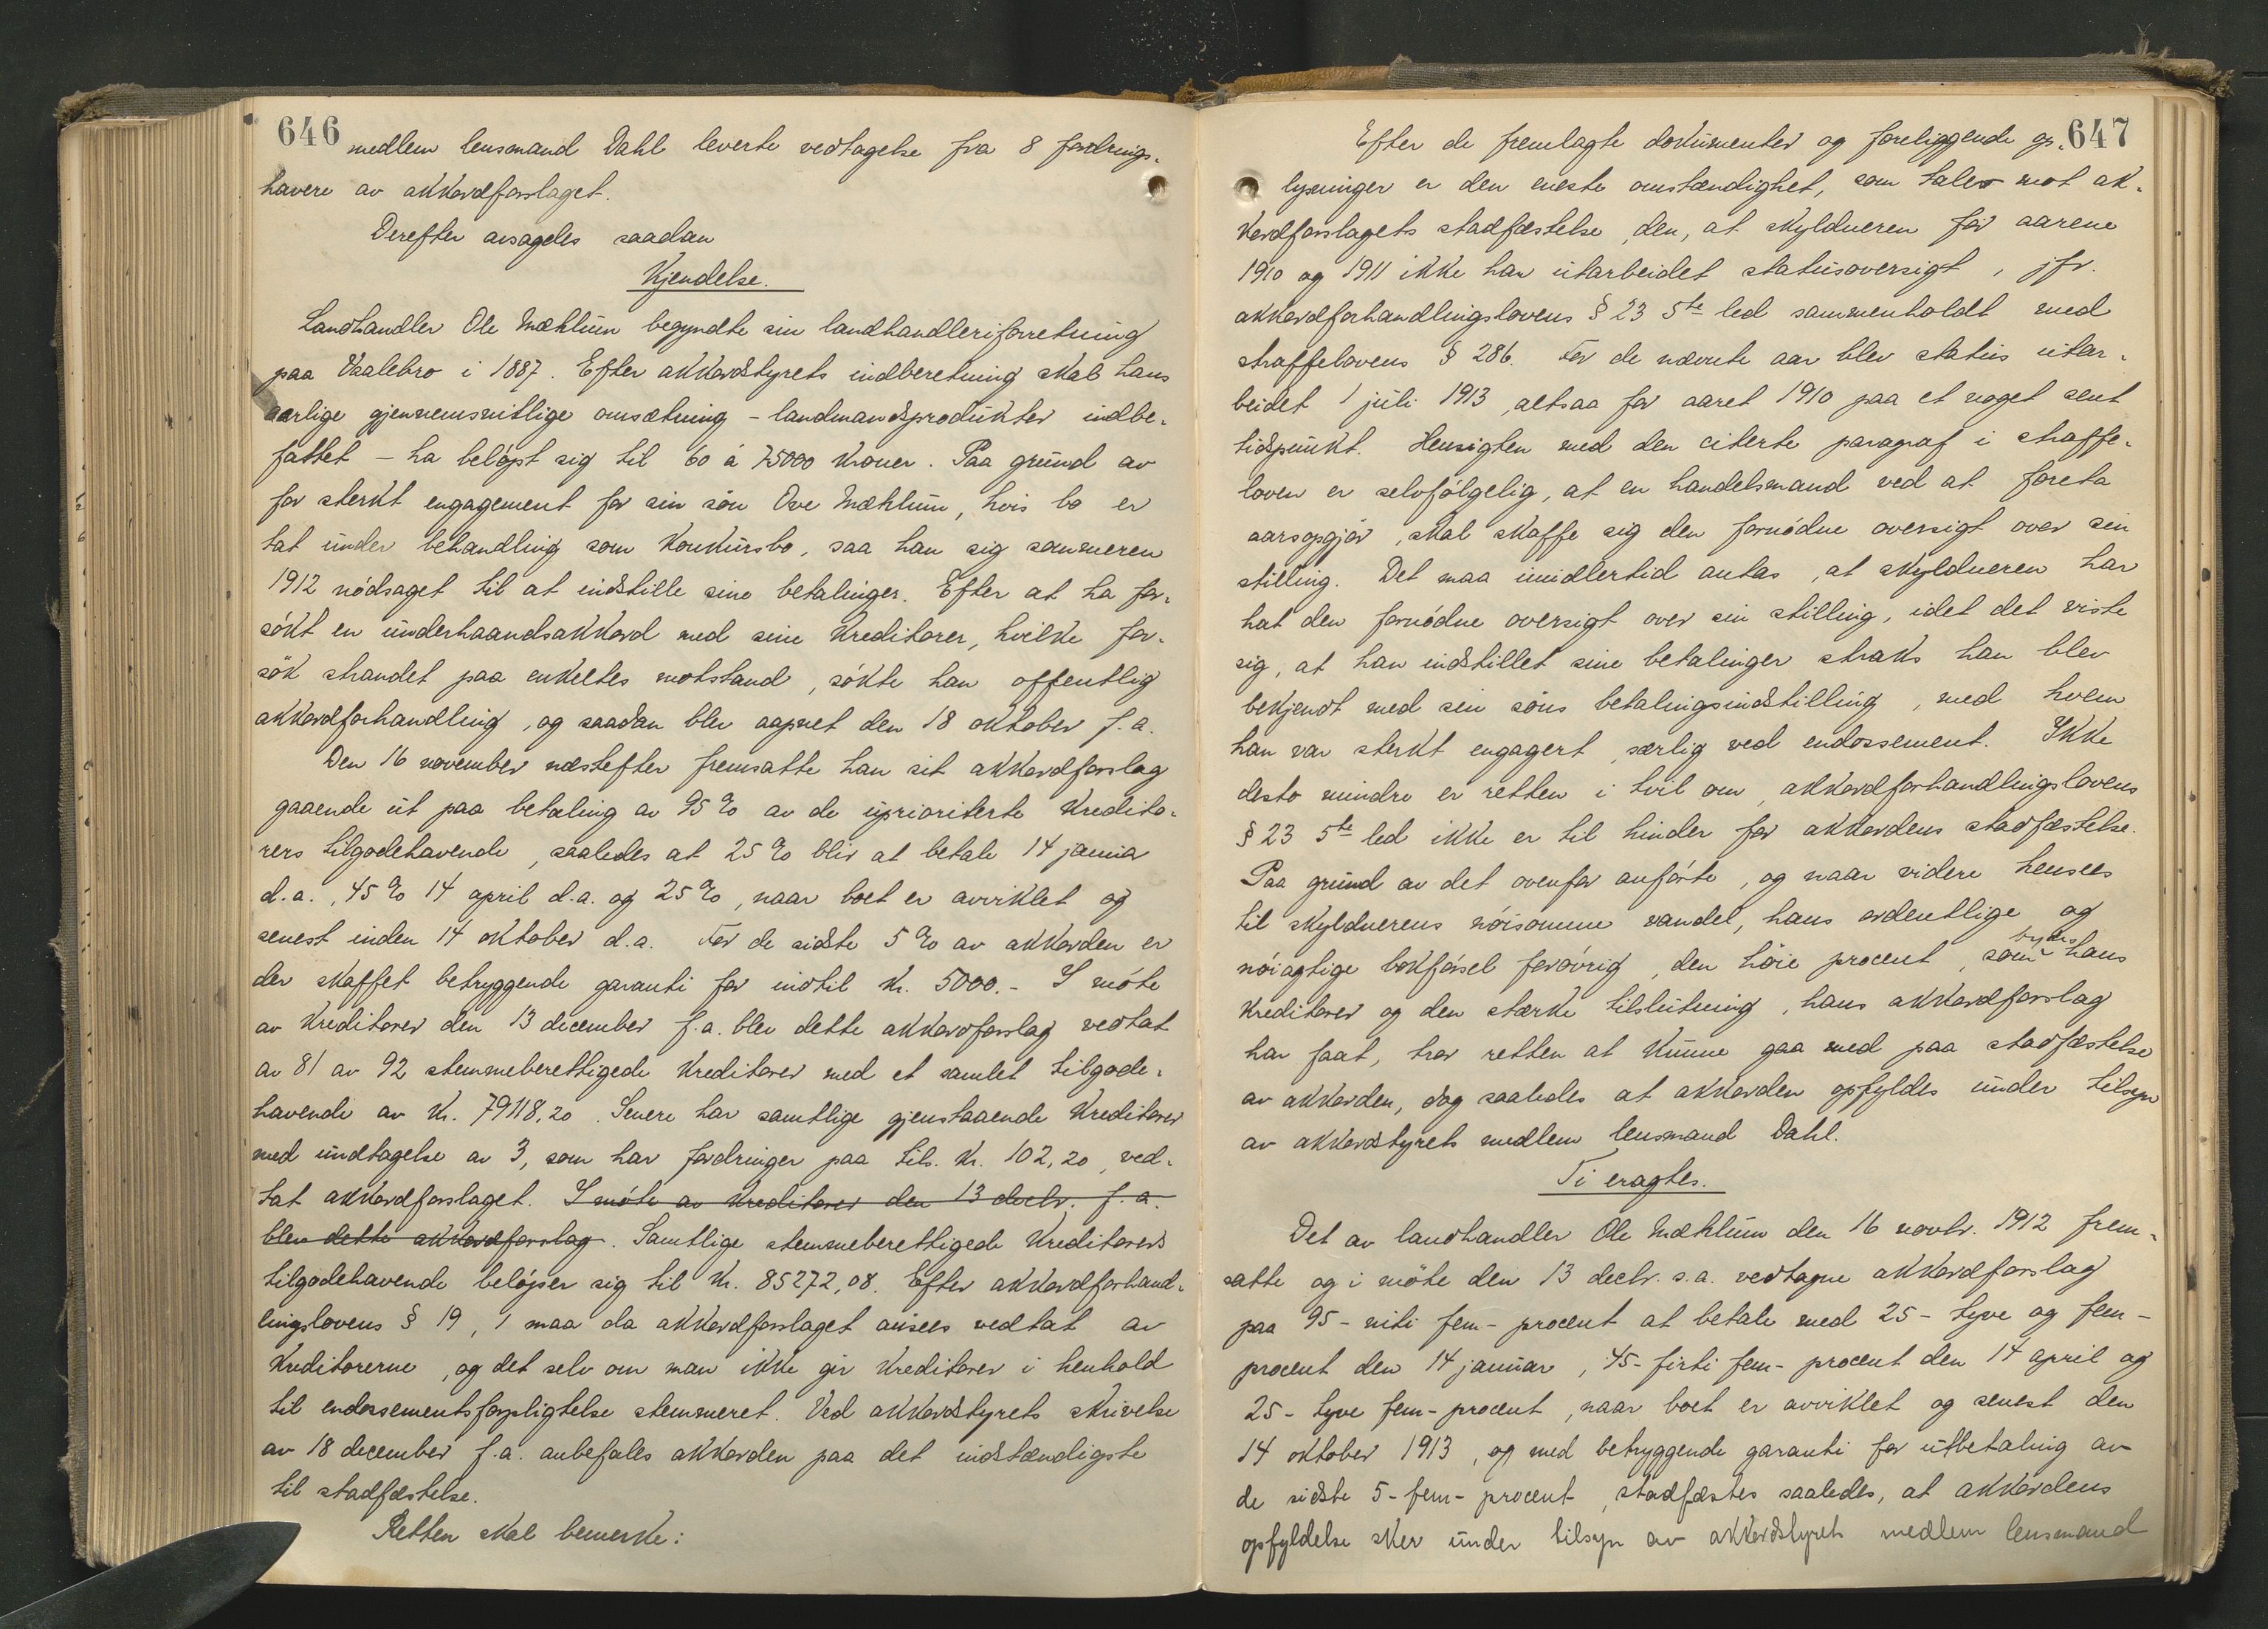 646
medlem lensmand Dahl leverte vedtagelse fra 8 fordrings-
havere av akkordforslaget.
Derefter avsagdes saadan
Kjendelse.
Landhandler Ole Mæhlum begyndte sin landhandleriforretning
paa Vaalebro i 1887. Efter akkordstyrets indberetning skal hans
aarlige gjennemsnitlige omsætning - landmandsprodukter indbe-
fattet - ha beløpt sig til 60 á 75000 kroner. Paa grund av
for sterkt engagement for sin søn Ove Mæhlum, hvis bo er
tat under behandling som konkursbo, saa han sig sommeren
1912 nødsaget til at indstille sine betalinger. Efter at ha for-
søkt en underhaandsakkord med sine kreditorer, hvilke for-
søk strandet paa enkeltes motstand, søkte han offentlig
akkordforhandling, og saadan blev aapnet den 18 oktober f.a.
Den 16 november næstefter fremsatte han sit akkordforslag
gaaende ut paa betaling av 95 % av de uprioriterte kredito-
rers tilgodehavende, saaledes at 25 % blir at betale 14 janua
d.a., 45 % 14 april d.a. og 25 %, naar boet er avviklet og
senest inden 14 oktober d.a. For de sidste 5 % av akkorden er
der skaffet betryggende garanti for indtil kr. 5000.- I møte
av kreditorer den 13 december f.a. blev dette akkordforslag vedtat
av 81 av 92 stemmeberettigede kreditorer med et samlet tilgode-
havende av kr. 79118,20. Senere har samtlige gjenstaaende kreditorer
med undtagelse av 3, som har fordringer paa tils. kr. 102,20, ved-
tat akkordforslaget. I møte av kreditorer den 13 decbr. f.a.
blev dette akkordforslag. Samtlige stemmeberettigede kreditorers
tilgodehavende beløper sig til kr. 85272,08. Efter akkordforhand-
lingslovens § 19, 1 maa da akkordforslaget ansees vedtat av
kreditorerne, og det selv om man ikke gir kreditorer i henhold
til endossementsforpligtelse stemmeret. Ved akkordstyrets skrivelse
av 18 december f.a. anbefales akkorden paa det indstændigste
til stadfæstelse.
Retten skal bemerke:
647
Efter de fremlagte dokumenter og foreliggende op-
lysninger er den eneste omstændighet, som taler mot ak-
kordforslagets stadfæstelse, den, at skyldneren for aarene
1910 og 1911 ikke har utarbeidet statusoversigt, jfr.
akkordforhandlingslovens § 23 5te led sammenholdt med
straffelovens § 286. For de nævnte aar blev status utar-
beidet 1 juli 1913, altsaa for aaret 1910 paa et noget sent
tidspunkt. Hensigten med den citerte paragraf i straffe-
loven er selvfølgelig, at en handelsmand ved at foreta
aarsopgjør, skal skaffe sig den fornødne oversigt over sin
stilling. Det maa imidlertid antas, at skyldneren har
hat den fornødne oversigt over sin stilling, idet det viste
sig, at han indstillet sine betalinger straks han blev
bekjendt med sin søns betalingsindstilling, med hvem
han var sterkt engagert, særlig ved endossement. Ikke
desto mindre er retten i tvil om, akkordforhandlingslovens
§ 23 5te led ikke er til hinder for akkordens stadfæstelse.
Paa grund av det ovenfor anførte, og naar videre hensees
til skyldnerens nøisomme vandel, hans ordentlige og
nøiagtige bokførsel forøvrig, den høie procent, som bydes hans
kreditorer og den stærke tilslutning, hans akkordforslag
har faat, tror retten at kunne gaa med paa stadfæstelse
av akkorden, dog saaledes at akkorden opfyldes under tilsyn
av akkordstyrets medlem lensmand Dahl.
Ti eragtes.
Det av landhandler Ole Mæhlum den 16 novbr. 1912 frem-
satte og i møte den 13 decbr. s.a. vedtagne akkordforslag
paa 95 - niti fem - procent at betale med 25 - tyve og fem -
procent den 14 januar, 45 - firti fem - procent den 14 april og
25 - tyve fem - procent, naar boet er avviklet og senest den
14 oktober 1913, og med betryggende garanti for utbetaling av
de sidste 5 - fem - procent, stadfæstes saaledes, at akkordens
opfyldelse sker under tilsyn av akkordstyrets medlem lensmand